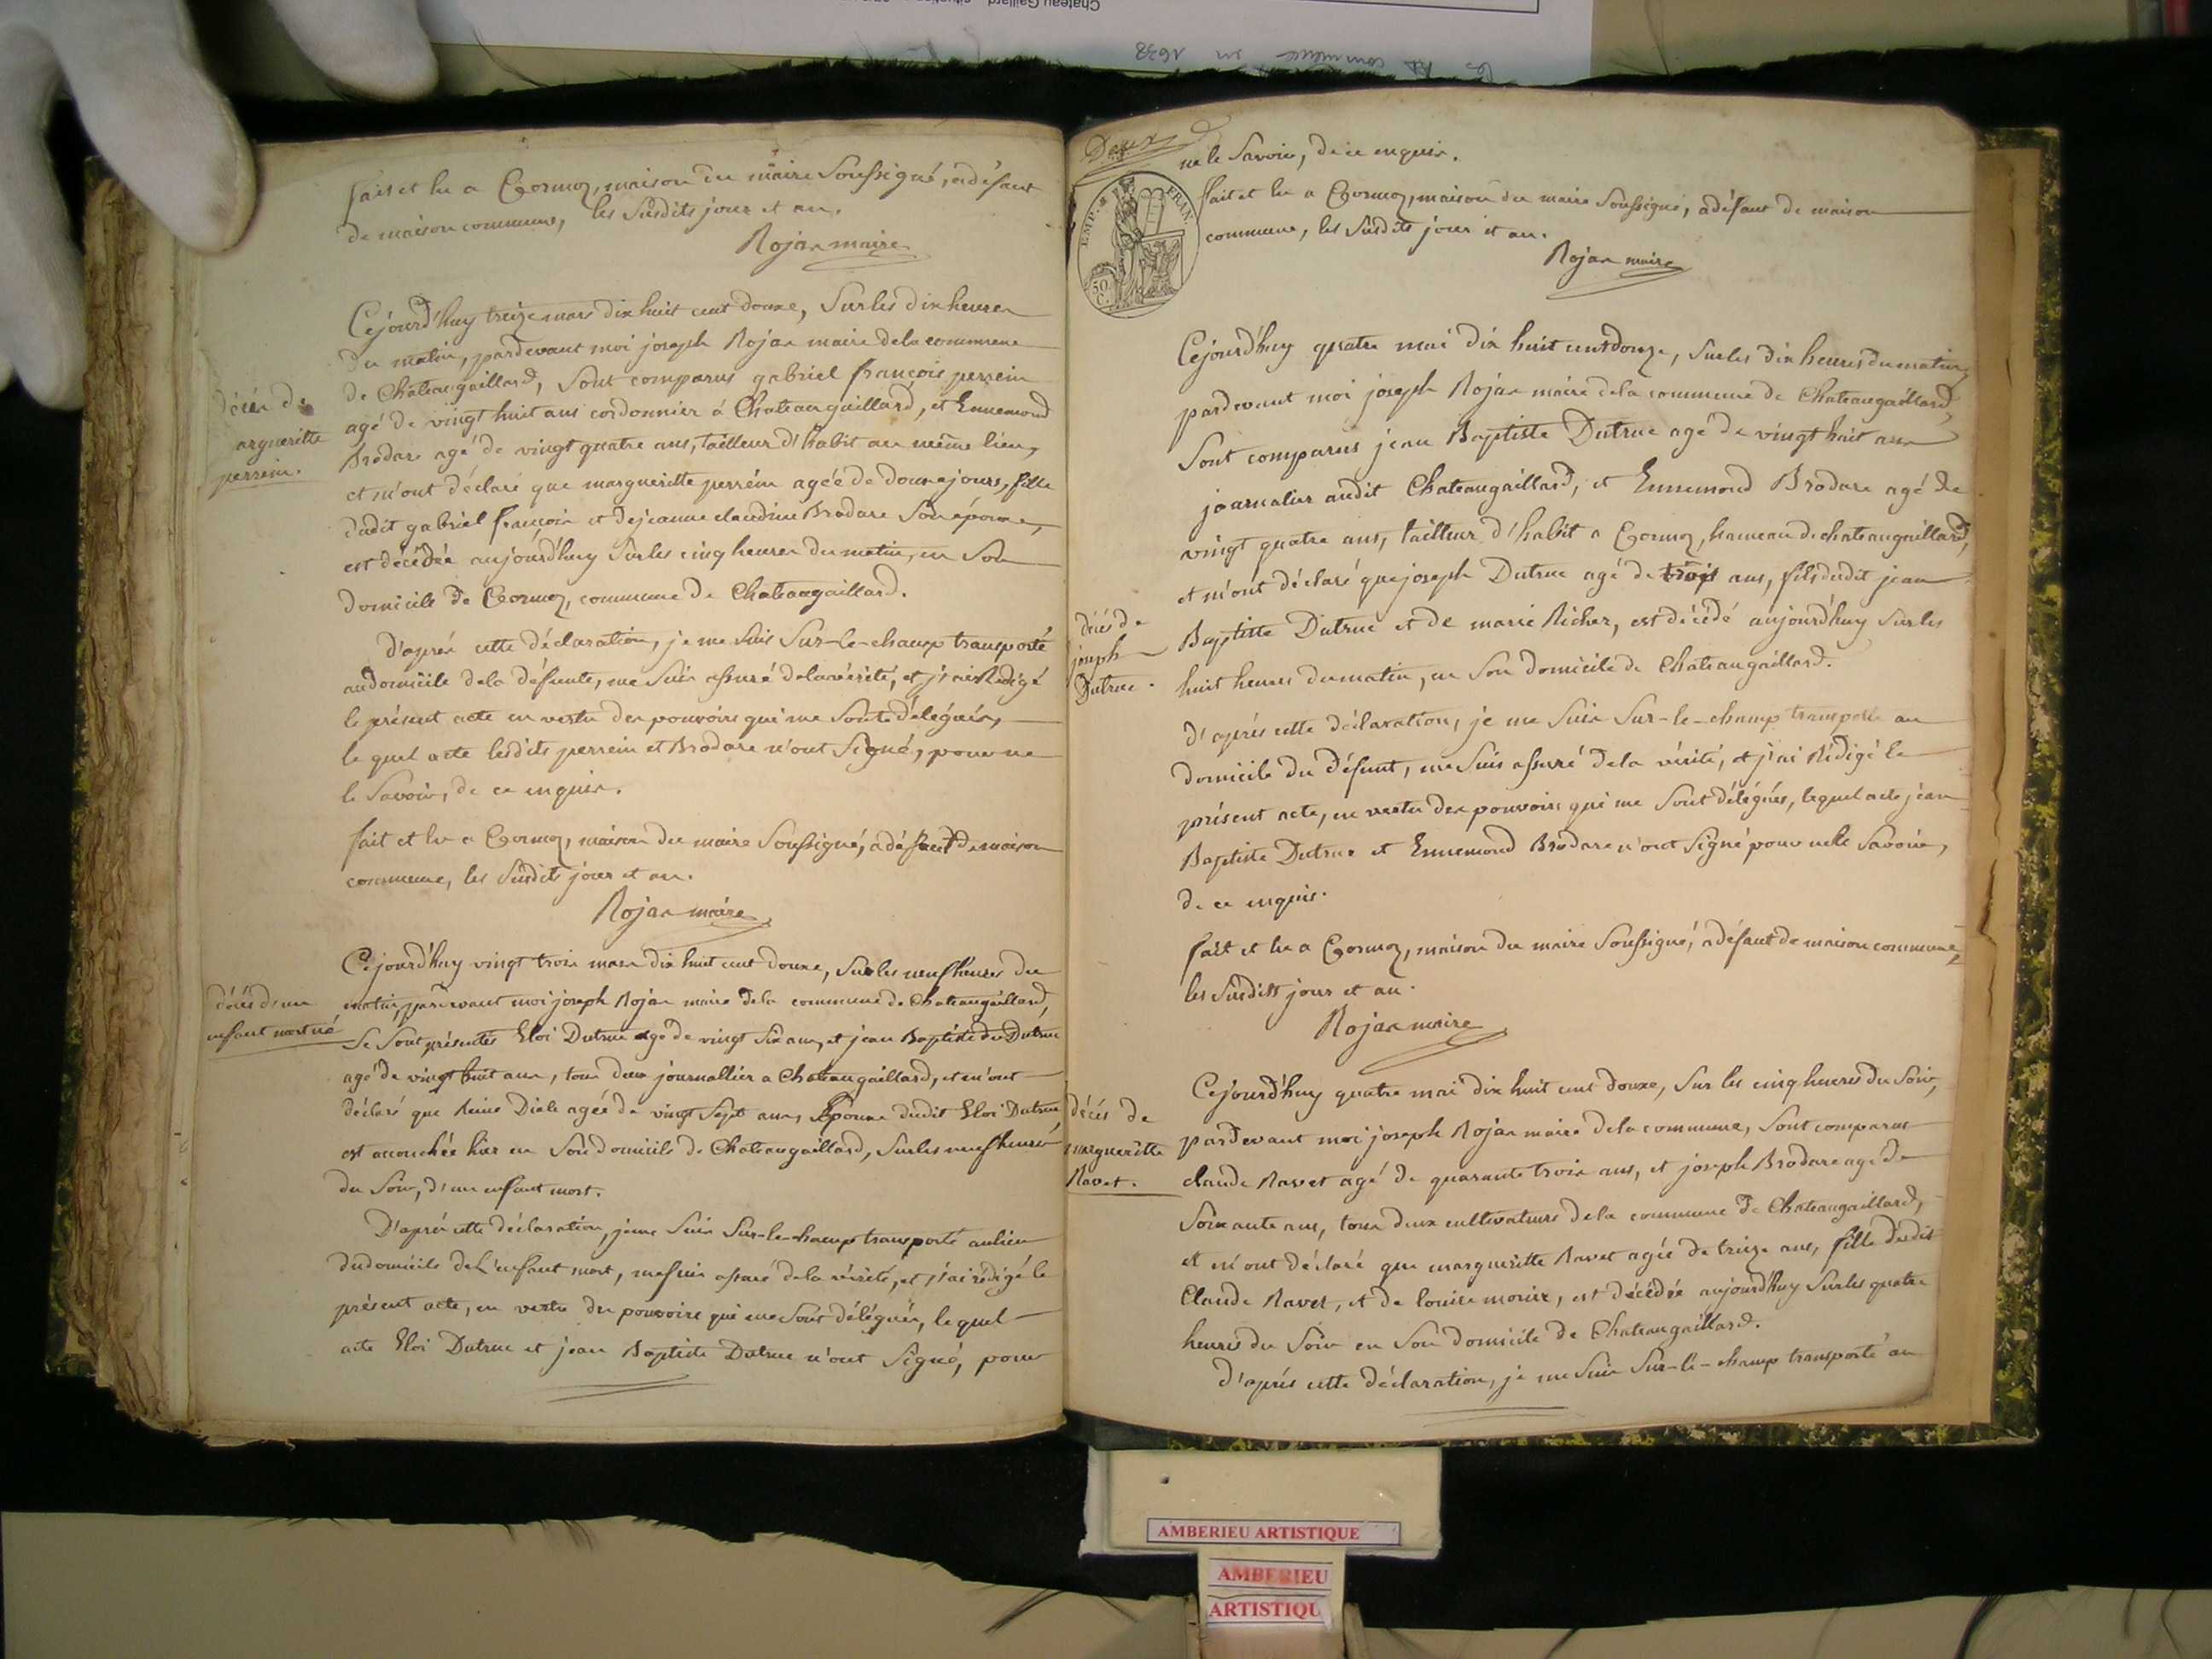 fait et lu a Cormoz, maison du maire Soussigné, a défaut
de maison commune, les Susdits jour et an.
Rojan maire
Cejourd'huy treize mars dix huit cent douze, Sur les dix heures
du matin, pardevant moi joseph Rojan maire dela commune
de Chateaugaillard, Sont comparus gabriel françois perrein
agé de vingt huit ans cordonnier á Chateaugaillard, et Ennemond
Brodare agé de vingt quatre ans, tailleur d'habit au même lieu,
et m'ont déclaré que margueritte perrein agéé de douze jours, fille
dudit gabriel françois et de jeanne claudine Brodare Son épouse,
est décédée aujourd'huy Sur les cinq heures du matin, en Son
domicile de Cormoz, commune de Chateaugaillard.
décés de
argueritte
perrein.
D'aprés cette déclaration, je me Suis Sur-le-champ transporté
au domicile dela défunte, me Suis assuré dela vérité, et j'ai Redigé
le présent acte en vertu des pouvoirs qui me Sont délégués,
le quel acte lesdits perrein et Brodare n'ont Signé, pour ne
le Savoir, de ce enquis.
fait et lu a Cormoz, maison du maire Soussigné, a défaut de maison
commune, les Susdits jour et an.
Rojan maire
Cejourd'huy vingt trois mars dix huit cent douze, Sur les neuf heures du
matin, pardevant moi joseph Rojan maire dela commune de Chateaugaillard,
Se Sont présentés Eloi Dutruc agé de vingt Six ans, et jean Baptiste du Dutruc
agé de vingt huit ans, tous deux journallier a Chateaugaillard, et m'ont
déclaré que Reine Diale agée de vingt Sept ans, Epouse dudit Eloi Dutruc,
est accouchée hier en Son domicile de Chateaugaillard, Sur les neuf heures
du Soir, d'un enfant mort.
décés d'un
enfant mort né
D'aprés cette déclaration, je me Suis Sur-le-champ transporté au lieu
du domicile de L'enfant mort, me suis assuré dela vérité, et j'ai rédigé le
présent acte, en vertu des pouvoirs qui me Sont délégués, le quel
acte Eloi Dutruc et jean Baptiste Dutruc n'ont Signé, pour
Deux
EMP. FRAN
50.
C.
ne le Savoir, de ce enquis.
fait et lu a Cormoz, maison du maire Soussigné, a défaut de maison
commune, les Susdits jour et an.
Rojan maire
Cejourd'huy quatre mai dix huit cent douze, Sur les dix heures du matin,
pardevant moi joseph Rojan maire dela commune de Chateaugaillard,
Sont comparus jean Baptiste Dutruc agé de vingt huit ans
journalier audit Chateaugaillard, et Ennemond Brodare agé de
vingt quatre ans, tailleur d'habit a Cormoz, hameau de chateaugaillard,
et m'ont déclaré que joseph Dutruc agé de trois ans, fils dudit jean
Baptiste Dutruc et de marie Richer, est décédé aujourd'huy Sur les
huit heures du matin, en Son domicile de Chateaugaillard.
décés de
joseph
Dutruc.
D'aprés cette déclaration, je me Suis Sur-le-champ transporté au
domicile du défunt, me Suis assuré dela vérité, et j'ai Rédigé le
présent acte, en vertu des pouvoirs qui me Sont délégués, lequel acte jean
Baptiste Dutruc et Ennemond Brodare n'ont Signé pour ne le Savoir,
de ce enquis.
fait et lu a Cormoz, maison du maire Soussigné, a défaut de maison commune,
les Susdits jour et an.
Rojan maire
Cejourd'huy quatre mai dix huit cent douze, Sur les cinq heures du Soir,
pardevant moi joseph Rojan maire dela commune, Sont comparus
claude Ravet agé de quarante trois ans, et joseph Brodare agé de
Soixante ans, tous deux cultivateurs dela commune de Chateaugaillard,
et m'ont déclaré que margueritte Ravet agée de treize ans, fille dudit
Claude Ravet, et de louise monier, est décédée aujourd'huy Sur les quatre
heures du Soir en Son domicile de Chateaugaillard.
décés de
margueritte
Ravet.
D'aprés cette déclaration, je me Suis Sur-le-champ transporté au
AMBERIEU ARTISTIQUE
AMBERIEU
ARTISTIQU